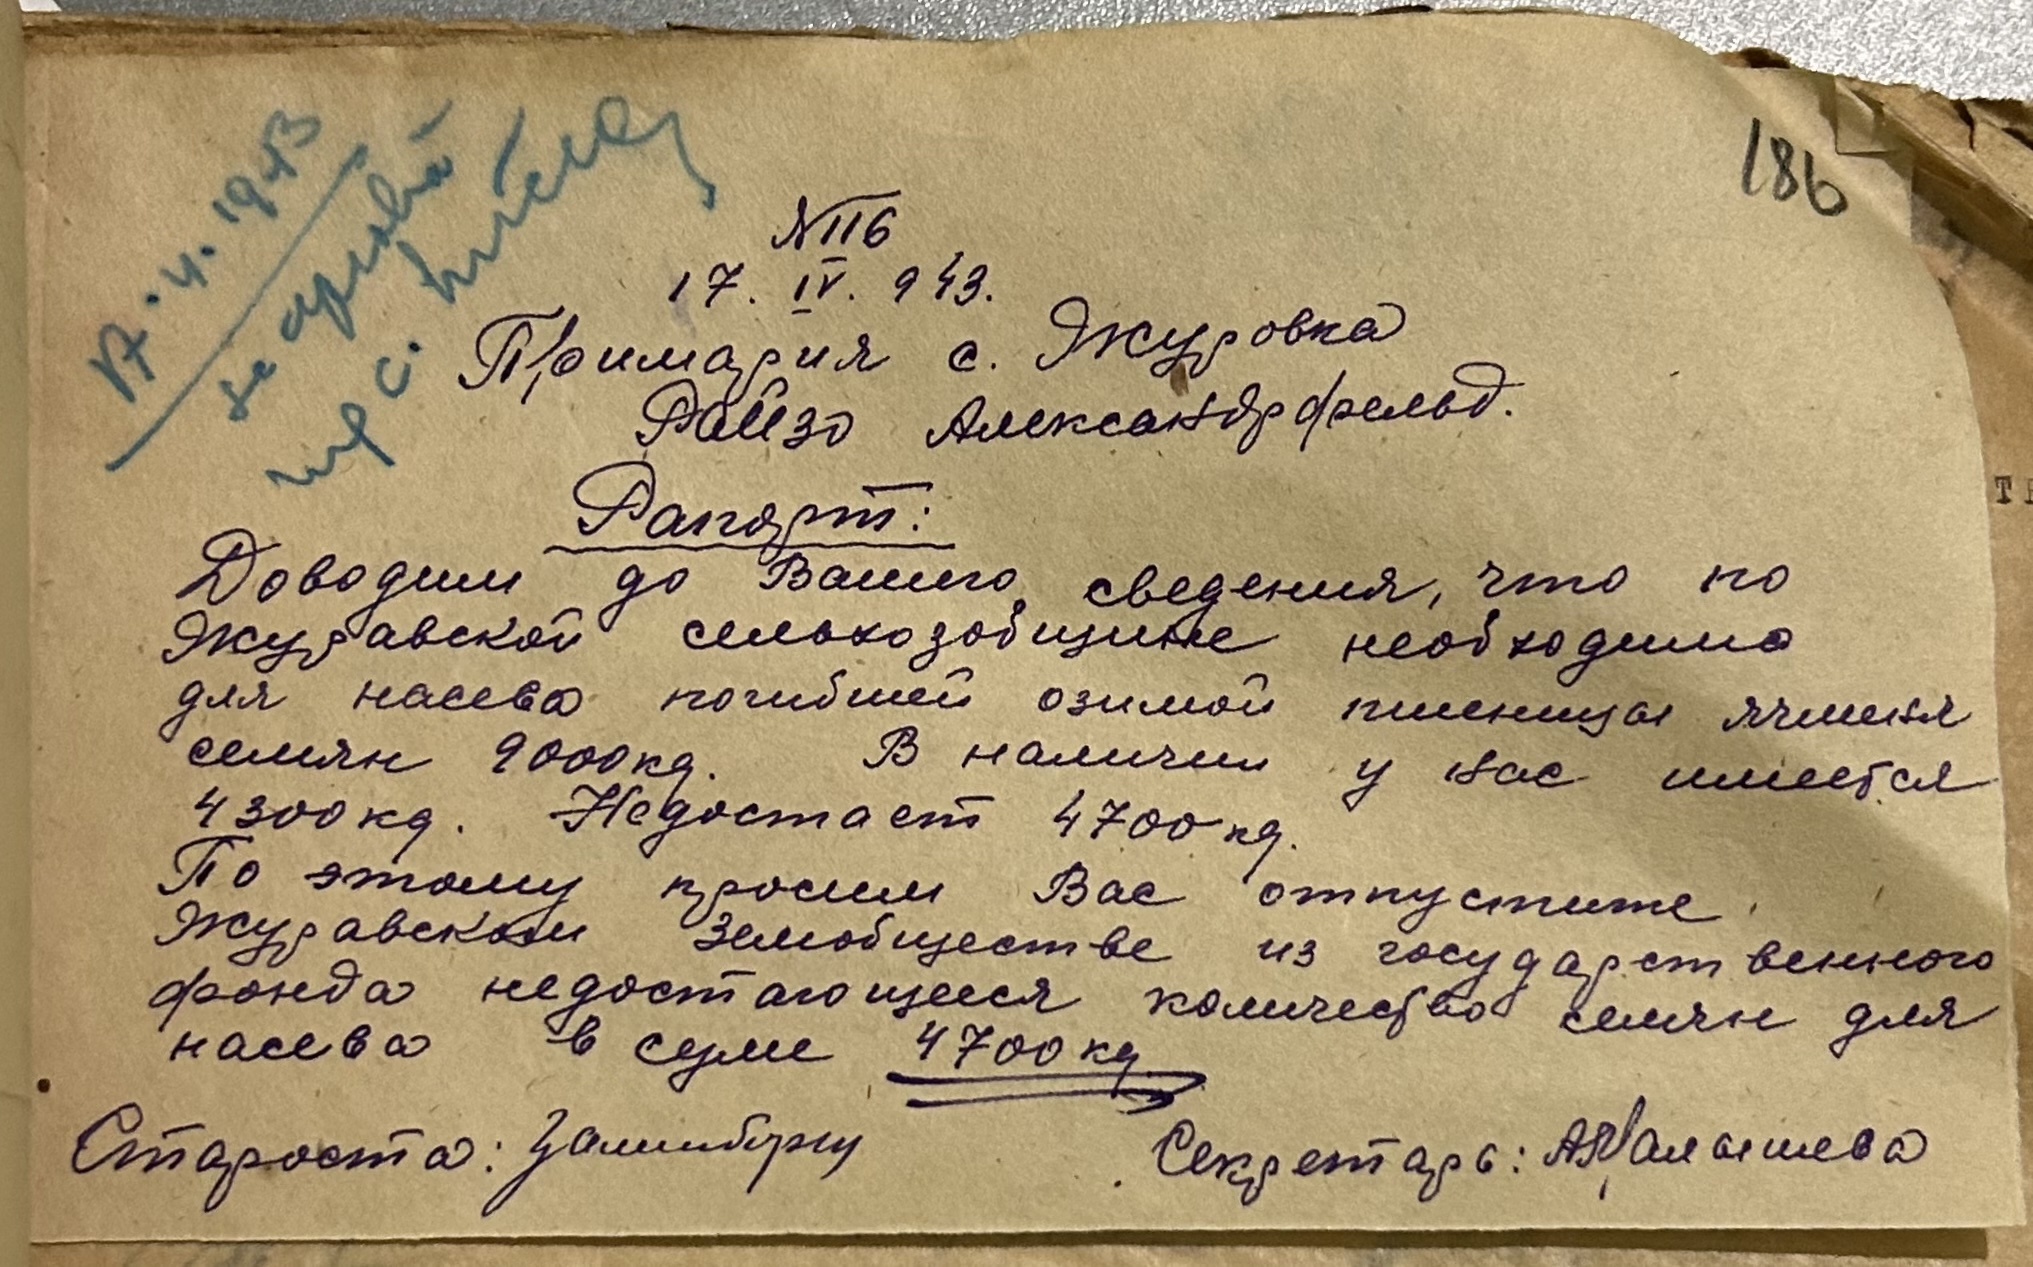 17.4.1943
186
№ 116
17. IV. 943.
Примария с. Журовка
Райзо Александрфельд.
Рапорт:
Доводим до Вашего сведения, что по
Журавской сельхозобщине необходимо
для насева погибшей озимой пшеницы ячменя
семян 9000 кг. В наличии у нас имеется
4300 кг. Недостает 4700 кг.
По этому просим Вас отпустите
Журавском Земобществе из государственного
фонда недостающееся количество семян для
насева в суме 4700 кг
Староста:
Секретарь: АМалышева